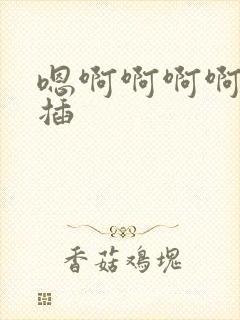 嗯啊啊啊啊
插
香菇鸡塊